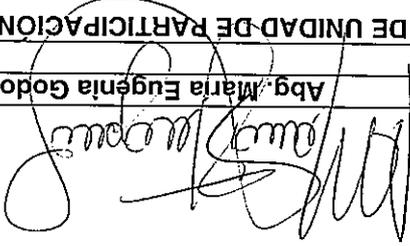 Abg. María Eugenia Godo
DE UNIDAD DE PARTICIPACIÓN